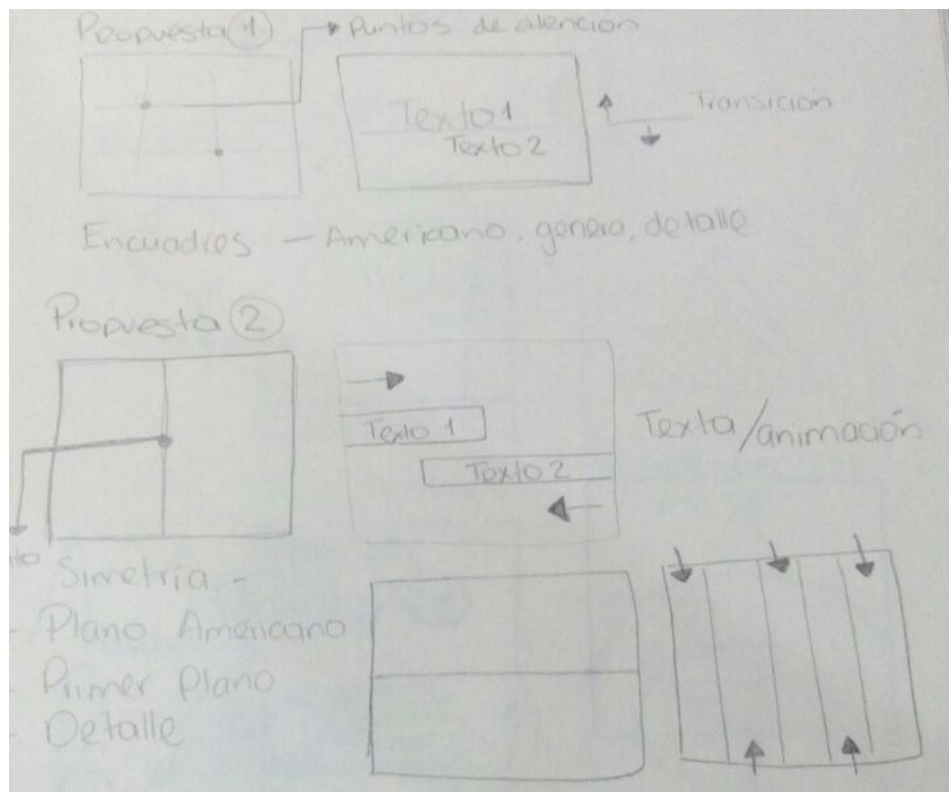 Propuesta 1
Puntos de atención
Texto 1
Texto 2
Transición
Encuadres - Americano, genera, detalle
Propuesta 2
Texto 1
Texto 2
Texto/animación
Simetría -
- Plano Americano
- Primer Plano
- Detalle